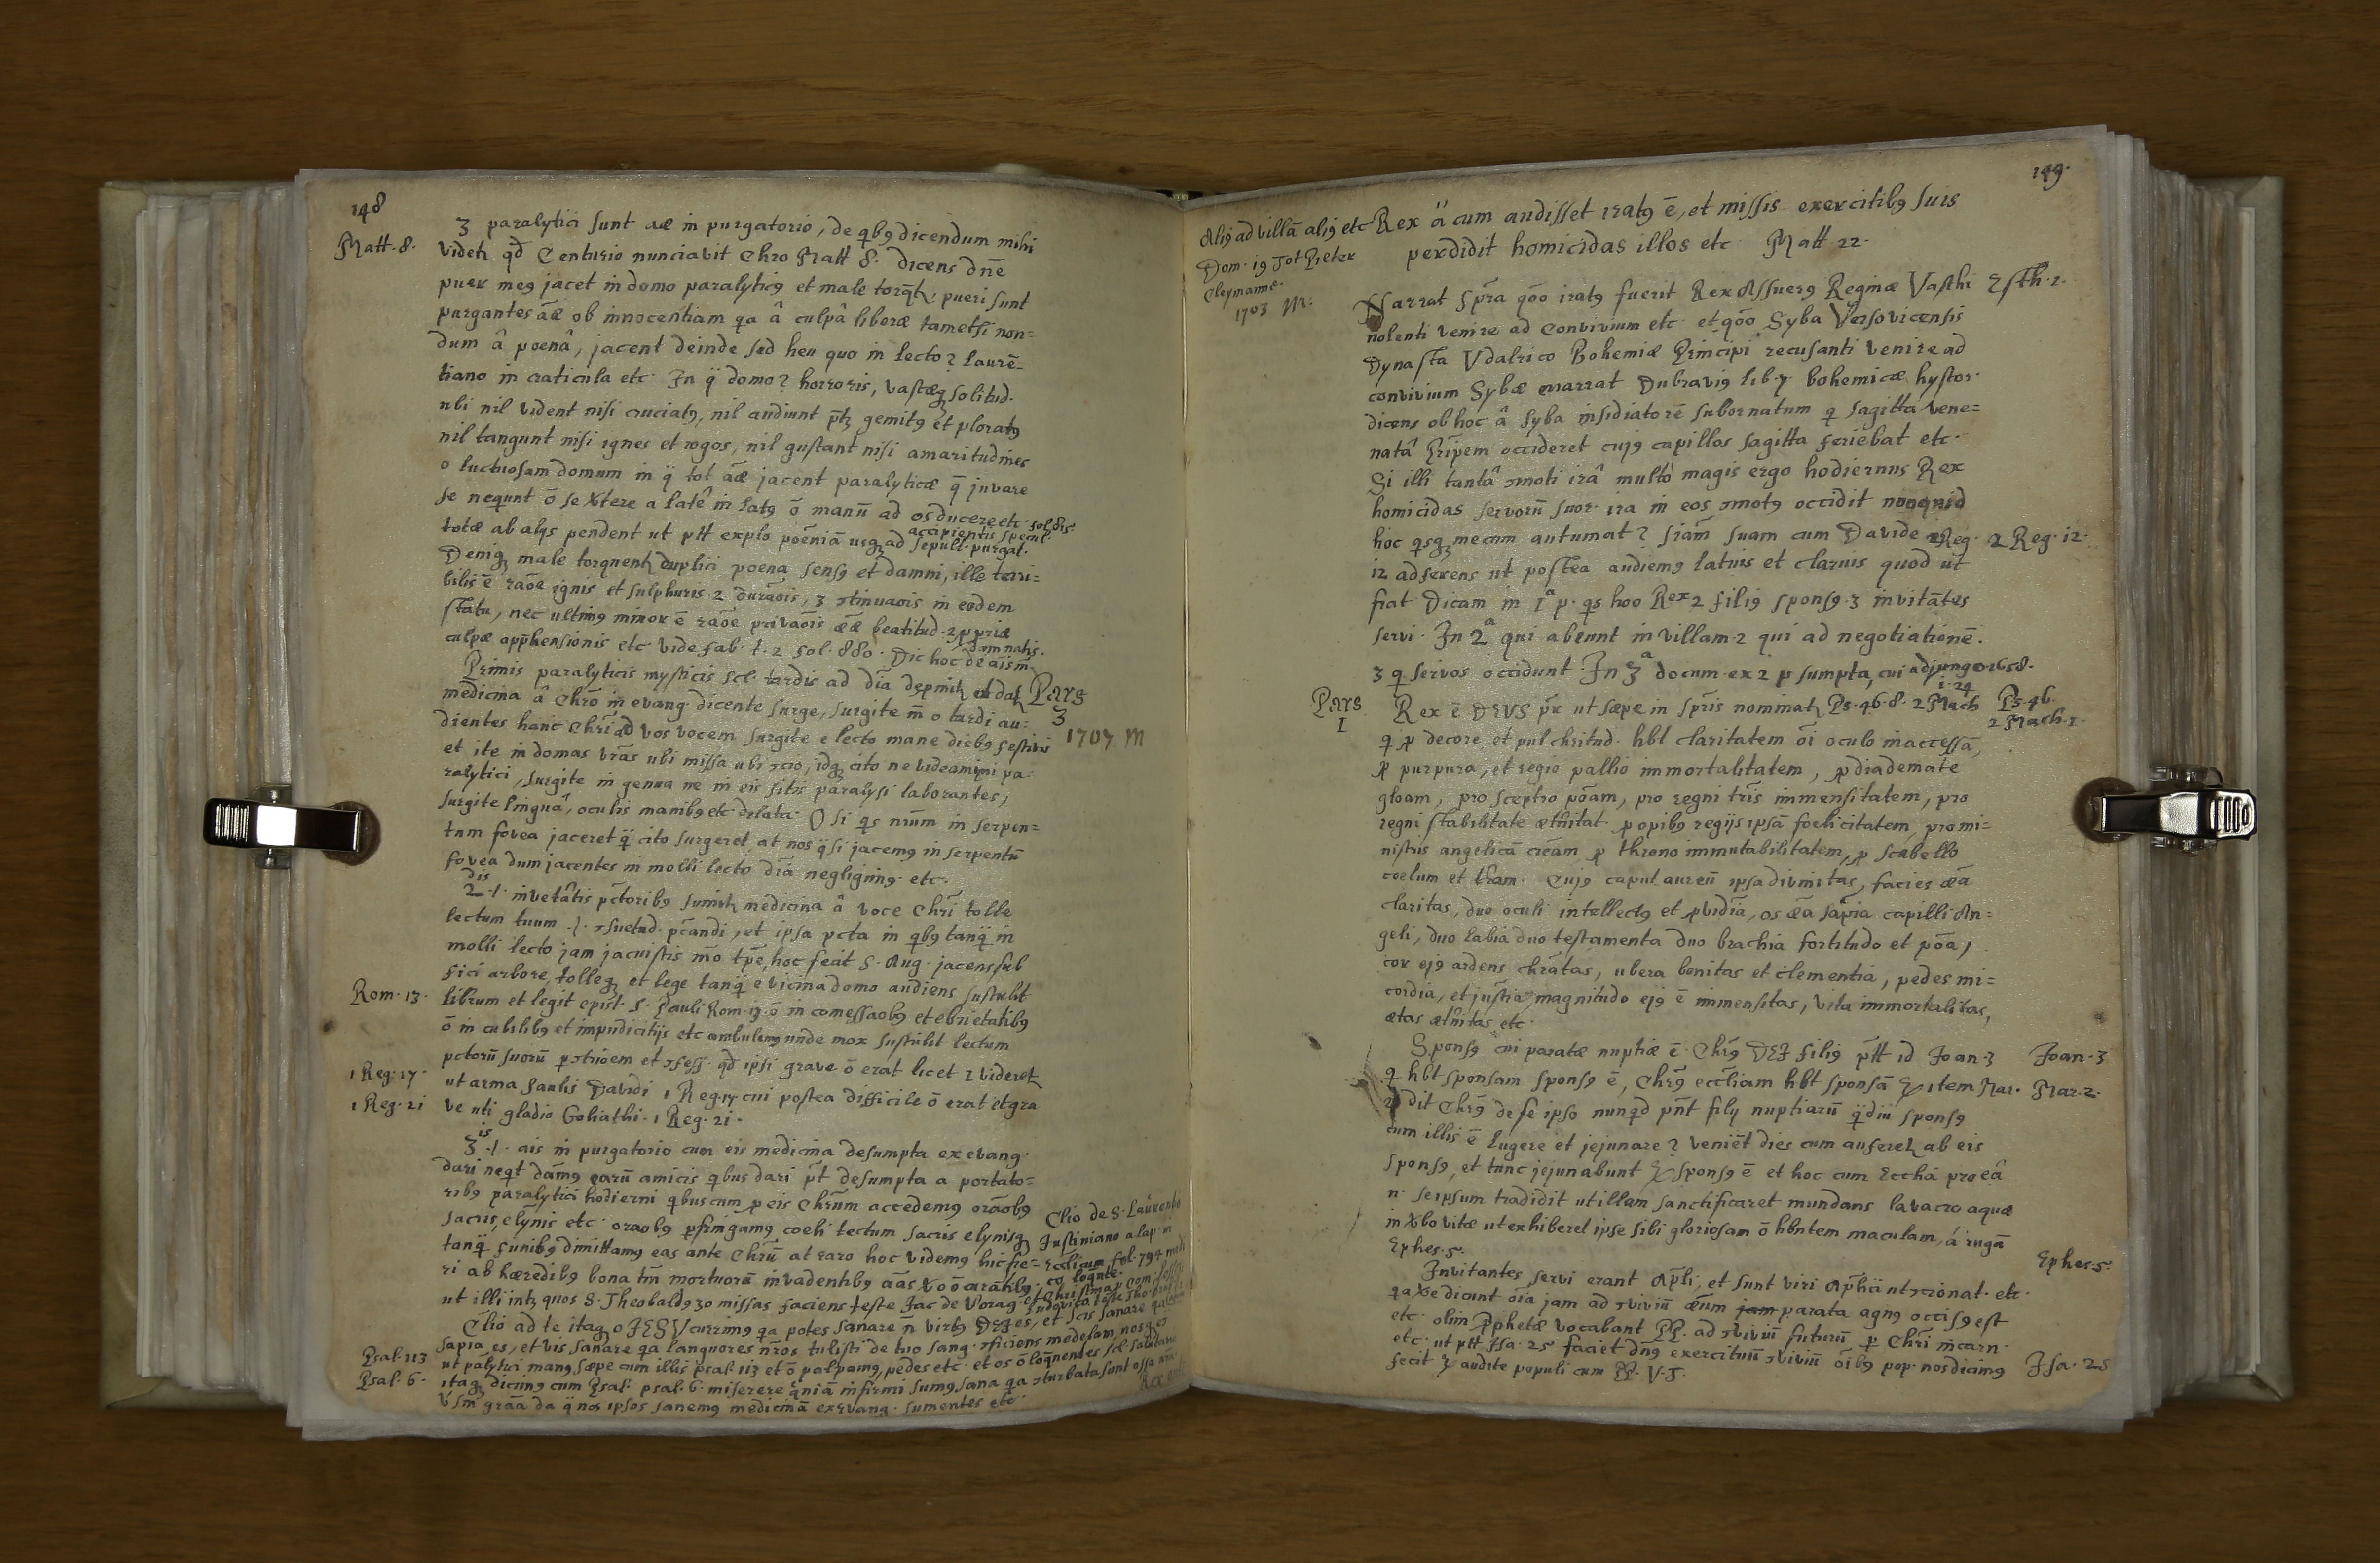 148
Matt. 8.
3 paralytici sunt aæ in purgatorio, de qbꝰ dicendum mihi
videtꝛ qd̄ Centurio nunciavit Chr̄o Matt 8. dicens dn̄e
puer meꝰ jacet in domo paralyticꝰ et male torq̄tꝛ. pueri sunt
purgantes āæ ob innocentiam qa â culpâ liberæ tametsi non=
dum â poenâ, jacent deinde sed heu quo in lecto? laurē=
tiano in craticula etc. In q̈ domo? horroris, vastæqꝫ solitud.
ubi nil vident nisi cruciatꝰ, nil audiunt p̄tꝫ gemitꝰ et ploratꝰ
nil tangunt nisi ignes et rogos, nil gustant nisi amaritudines
o luctuosam domum in q̈ tot āæ jacent paralyticæ q̄ juvare
se nequnt ō se v̄tere a latê in latꝰ ō manū ad os ducere etc. sol. 818
totæ ab aliis pendent ut ptt explo poēniā usqꝫ ad sepult. purgat.
accipientis specul.
Deniqꝫ male torquentꝛ duplici poena sensꝰ et damni, ille terri=
bilis ē raōe ignis et sulphuris. 2 duraōis, 3 ɔtinuaōis in eodem
statu, nec ultimꝰ minor ē raōe privaōis ææ beatitud. 2 ꝓpriæ
culpæ app̄hensionis etc vide fab t. 2 fol. 880. Dic hoc de aīsm
damnatis.
Primis paralyticis mysticis scl. tardis ad dīa depmitꝛ et datꝛ
Pars
3
medicina â Chr̄o in evang. dicente surge, surgite m̄ o tardi au=
dientes hanc Chr̄i ad vos vocem surgite e lecto mane diebꝰ festivis
1707 M
et ite in domas vr̄as ubi missa ubi ɔcio, idqꝫ cito ne videamini pa=
ralytici, surgite in genua ne in eis sitis paralysi laborantes,
surgite linguâ, oculis manibꝰ etc. elata. O si qs nr̄um in serpen=
tum fovea jaceret q̈ cito surgeret, at nos q̈si jacemꝰ in serpentū
fovea dum jacentes in molli lecto dīa negligimꝰ etc.
2dis .l. invetâtis pctoribꝰ sumitꝛ medicina â voce Chr̄i tolle
lectum tuum .l. ɔsuetud. pc̄andi, et ipsa pcta in qbꝰ tanq̈ in
molli lecto jam jacuistis m̄o tp̄e, hoc fecit S. Aug. jacens sub
fici arbore, tolleqꝫ et lege tanq̈ e vicina domo audiens sustulit
Rom. 13.
librum et legit epist. S. Pauli Rom. 13. ō in comessaōbꝰ et ebrietatibꝰ
ō in cubilibꝰ et impudicitijs etc ambulemꝰ unde mox sustulit lectum
pctorū suorū ꝑ ɔtrioēm et ɔfess. qd̄ ipsi grave ō erat licet 2 videretꝛ
1 Reg. 17.
ut arma Saulis Davidi 1 Reg. 17. cui postea difficile ō erat et gra
1 Reg. 21
ve uti gladio Goliathi. 1 Reg. 21.
3is .l. ais in purgatorio cum eis medicina desumpta ex evang.
dari neqt damꝰ earū amicis qbus dari p̄t desumpta a portato=
ribꝰ paralytici hodierni qbuscum ꝓ eis Chr̄um accedemꝰ orāōbꝰ
sacris, elynis etc. oraōbꝰ ꝑfringamꝰ coeli tectum sacris elynisqꝫ
tanq̈ funibꝰ dimittamꝰ eas ante Chr̄ū at raro hoc videmꝰ hic fie=
ri ab hæredibꝰ bona tm̄ mortuorū invadentibꝰ aās
ut illi intꝛ quos S. Theobaldꝰ 30 missas faciens teste Jac de Vorag.
Clio de S. Laurentio
Justiniano a lap. in
Ecclicum fol. 794
Clio ad te itaqꝫ o JESV currimꝰ qa potes sanare n̄ virtꝰ DEI es, et scis sanare qa
sapīa es, et vis sanare qa languores nr̄os tulisti de tuo sang. ɔficiens medelam, nosqꝫ
Psal. 113
ut palysui manꝰ sæpe cum illis psal. 113 et ō palpamꝰ, pedes etc. et os ō loqnentes
Psal. 6.
itaqꝫ dicimꝰ cum Psal. psal. 6. miserere q̄niā infirmi sumꝰ, sana qa ɔturbata sunt ossa
gr̄aā da q̈ nos ipsos sanemꝰ medicinā ex evang. sumentes etc.
149.
Aliꝰ ad villā aliꝰ etc
Dom. 19 Tot Pieter
Cleymanne.
1703 M.
Rex ä cum audisset iratꝰ ē, et missis exercitibꝰ suis
perdidit homicidas illos etc. Matt 22.
Narrat sp̄ra qōo iratꝰ fuerit Rex Assuerꝰ Reginæ Vasthi
Esth. 1.
nolenti venire ad convivium etc. et qōo Syba Versovicensis
Dynasta Vdalrico Bohemiæ Principi recusanti venire ad
convivium Sybæ narrat Dubraviꝰ lib. 7 bohemicæ hystor.
dicens ob hoc â Syba insidiatorē subornatum q sagittâ vene=
natâ Prīpem occideret cujꝰ capillos sagitta feriebat etc.
Si illi tantâ ɔmoti irâ multò magis ergo hodiernus Rex
homicidas servorū suor. ira in eos ɔmotꝰ occidit nunquid
hoc qsqꝫ mecum autumat? siām suam cum Davide 2 Reg.
2 Reg. 12.
12 adferens ut postea audiemꝰ latius et clarius quod ut
fiat Dicam in 1ª p. qs hoo Rex 2 filiꝰ sponsꝰ 3 invitātes
servi. In 2ª qui abeunt in villam 2 qui ad negotiationē.
3 q servos occidunt. In 3ª docum. ex 2 p sumpta, cui adjungo 1658.
Pars
1
Rex ē DEVS p̄r ut sæpe in sp̄ris nominatꝛ Ps. 46. 8. 2 Mach 1. 24
Ps. 46.
2 Mach. 1.
q ꝓ decore et pulchritud. hbt claritatem ōi oculo inaccessā,
ꝓ purpura, et regio pallio immortalitatem, ꝓ diademate
gloam, pro sceptro pōam, pro regni tr̄is immensitatem, pro
regni stabilitate æt̄nitat. ꝓ opibꝰ regijs ipsā foelicitatem, pro mi=
nistris angelicā creām ꝓ throno immutabilitatem, ꝓ scabello
coelum et tr̄am. Cujꝰ caput aureū ipsa divinitas, facies æa
claritas, duo oculi intellectꝰ et ꝓvidīa, os æa sapīa capilli An=
geli, duo labia duo testamenta duo brachia fortitudo et pōa,
cor ejꝰ ardens chr̄atas, ubera bonitas et clementia, pedes mi=
cordia, et justīa, magnitudo ejꝰ ē immensitas, vita immortalitas,
ætas æt̄nitas etc.
Sponsꝰ cui paratæ nuptiæ ē. Chrꝰ DEI filiꝰ ptt id Joan. 3
Joan. 3
q hbt sponsam sponsꝰ ē, Chrꝰ eccliam hbt sponsā item Mar.
Mar. 2.
2 dit Chrꝰ de se ipso nunqd pn̄t filij nuptiarū q̈diu sponsꝰ
cum illis ē lugere et jejunare? veniēt dies cum auferetꝛ ab eis
sponsꝰ, et tunc jejunabunt sponsꝰ ē et hoc cum Ecclīa pro eâ
n. seipsum tradidit ut illam sanctificaret mundans lavacro aquæ
in v̄bo vitæ ut exhiberet ipse sibi gloriosam ō hbntem maculam, á rugā
Ephes. 5.
Ephes. 5.
Invitantes servi erant Apli, et sunt viri Aplici ut ɔcionat. etc.
qa v̄e dicunt oīa jam ad ɔviviū æūm jam parata agnꝰ occisꝰ est
etc. olim Prophetæ vocabant PP. ad ɔviviū futurū ꝓ Chr̄i incarn.
etc. ut ptt Isa. 25 faciet dnꝰ exercituū ɔviviū oībꝰ pop. nos dicimꝰ
Isa. 25
fecit audite populi cum PP. V. T.